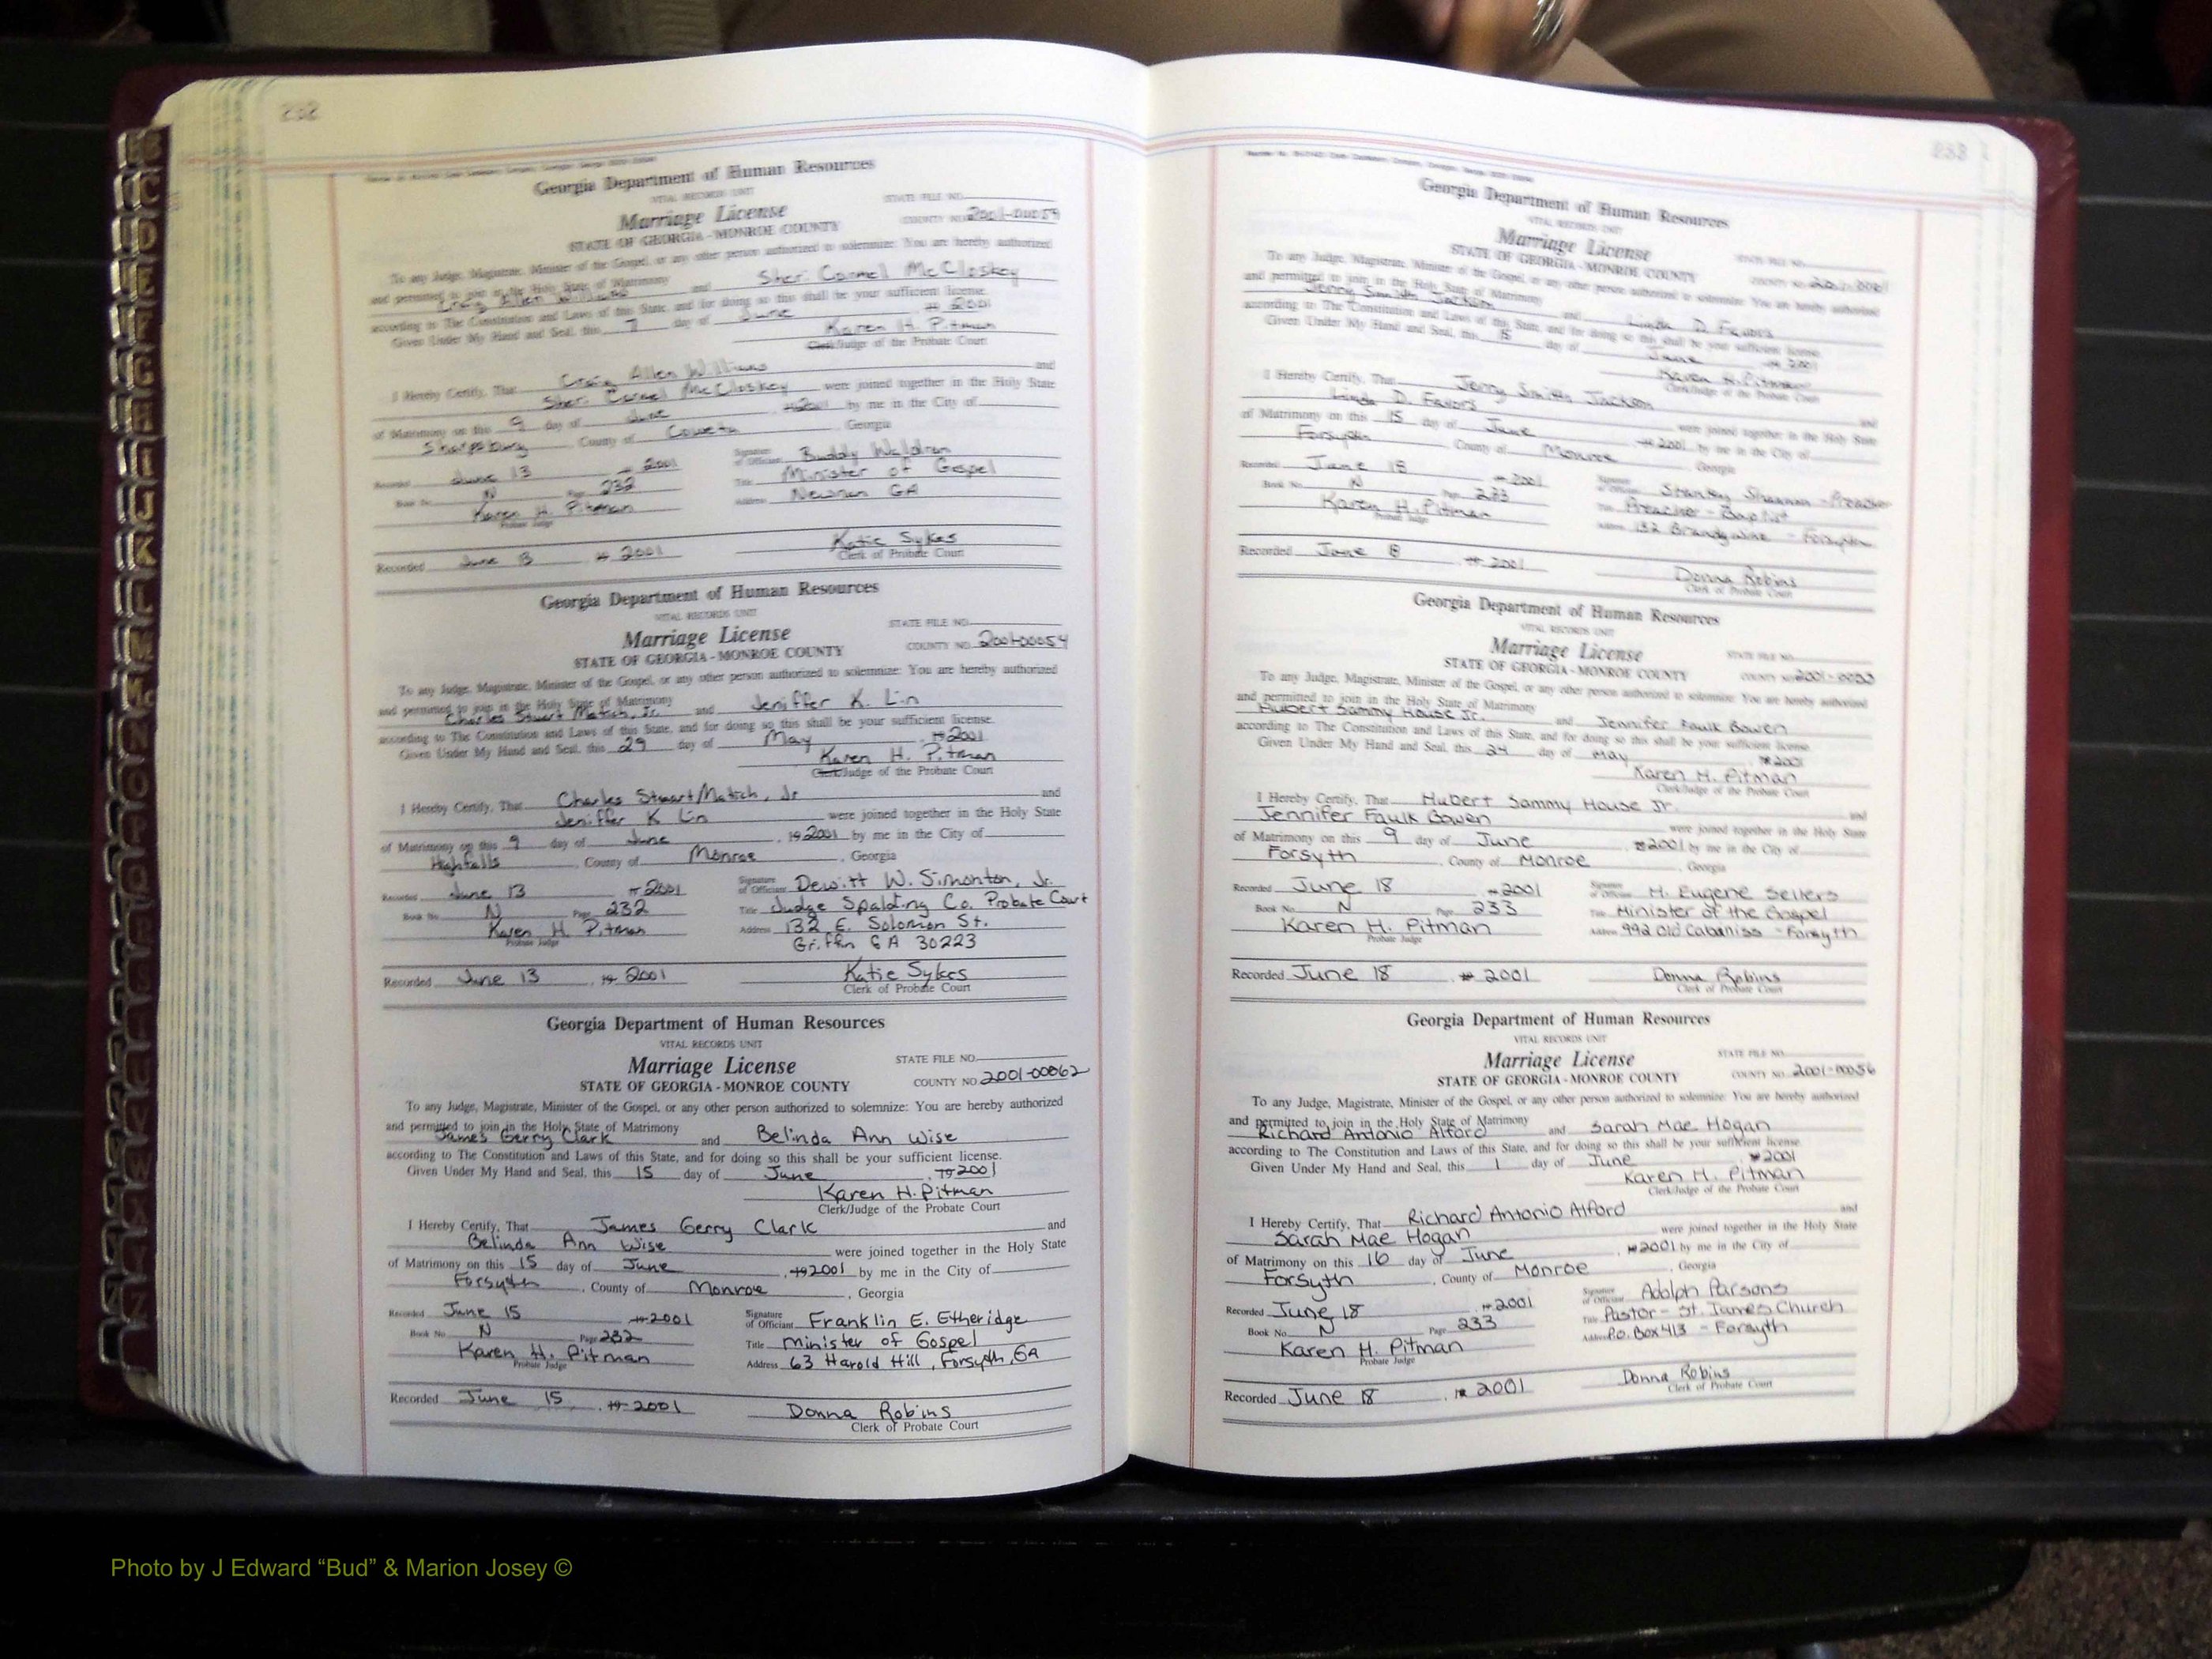 232
Georgia Department of Human Resources
VITAL RECORDS UNIT
Marriage License
STATE FILE NO.
STATE OF GEORGIA - MONROE COUNTY
COUNTY NO. 2001-00059
To any Judge, Magistrate, Minister of the Gospel, or any other person authorized to solemnize: You are hereby authorized
and permitted to join in the Holy State of Matrimony
Craig Allen Williams and Sheri Carmel McCloskey
according to The Constitution and Laws of this State, and for doing so this shall be your sufficient license.
Given Under My Hand and Seal, this 7 day of June 2001
Karen H. Pitman
Clerk/Judge of the Probate Court
I Hereby Certify, That Craig Allen Williams and
Sheri Carmel McCloskey were joined together in the Holy State
of Matrimony on this 9 day of June 2001 by me in the City of
Sharpsburg, County of Coweta, Georgia
Recorded June 13 2001 Signature of Officiant Buddy Waldron
Book No. N Page 232 Title Minister of Gospel
Karen H. Pitman Address Newnan GA
Probate Judge
Recorded June 13 2001 Katie Sykes
Clerk of Probate Court
Georgia Department of Human Resources
VITAL RECORDS UNIT
Marriage License
STATE FILE NO.
STATE OF GEORGIA - MONROE COUNTY
COUNTY NO. 2001-00054
To any Judge, Magistrate, Minister of the Gospel, or any other person authorized to solemnize: You are hereby authorized
and permitted to join in the Holy State of Matrimony
Charles Stuart Matich, Jr. and Jeniffer K. Lin
according to The Constitution and Laws of this State, and for doing so this shall be your sufficient license.
Given Under My Hand and Seal, this 29 day of May, 2001
Karen H. Pitman
Clerk/Judge of the Probate Court
I Hereby Certify, That Charles Stuart Matich, Jr and
Jeniffer K Lin were joined together in the Holy State
of Matrimony on this 9 day of June, 19 2001 by me in the City of
Highfalls, County of Monroe, Georgia
Recorded June 13 2001 Signature of Officiant Dewitt W. Simonton, Jr.
Book No. N Page 232 Title Judge Spalding Co. Probate Court
Karen H. Pitman Address 132 E. Solomon St.
Probate Judge Griffin GA 30223
Recorded June 13, 19 2001 Katie Sykes
Clerk of Probate Court
Georgia Department of Human Resources
VITAL RECORDS UNIT
Marriage License
STATE FILE NO.
STATE OF GEORGIA - MONROE COUNTY
COUNTY NO. 2001-00062
To any Judge, Magistrate, Minister of the Gospel, or any other person authorized to solemnize: You are hereby authorized
and permitted to join in the Holy State of Matrimony
James Gerry Clark and Belinda Ann Wise
according to The Constitution and Laws of this State, and for doing so this shall be your sufficient license.
Given Under My Hand and Seal, this 15 day of June, 19 2001
Karen H. Pitman
Clerk/Judge of the Probate Court
I Hereby Certify, That James Gerry Clark and
Belinda Ann Wise were joined together in the Holy State
of Matrimony on this 15 day of June, 19 2001 by me in the City of
Forsyth, County of Monroe, Georgia
Recorded June 15 2001 Signature of Officiant Franklin E. Etheridge
Book No. N Page 232 Title Minister of Gospel
Karen H. Pitman Address 63 Harold Hill, Forsyth, GA
Probate Judge
Recorded June 15, 19 2001 Donna Robins
Clerk of Probate Court
233
Georgia Department of Human Resources
VITAL RECORDS UNIT
Marriage License
STATE FILE NO.
STATE OF GEORGIA - MONROE COUNTY
COUNTY NO.
To any Judge, Magistrate, Minister of the Gospel, or any other person authorized to solemnize: You are hereby authorized
and permitted to join in the Holy State of Matrimony
Jerry Smith Jackson and Linda D. Favors
according to The Constitution and Laws of this State, and for doing so this shall be your sufficient license.
Given Under My Hand and Seal, this 15 day of June 2001
Karen H. Pitman
Clerk/Judge of the Probate Court
I Hereby Certify, That Jerry Smith Jackson and
Linda D. Favors were joined together in the Holy State
of Matrimony on this 15 day of June 2001 by me in the City of
Forsyth, County of Monroe, Georgia
Recorded June 18 2001 Signature of Officiant Stanley Shannon - Preacher
Book No. N Page 233 Title Preacher - Baptist
Karen H. Pitman Address 132 Brandywine - Forsyth
Probate Judge
Recorded June 18 2001 Donna Robins
Clerk of Probate Court
Georgia Department of Human Resources
VITAL RECORDS UNIT
Marriage License
STATE FILE NO.
STATE OF GEORGIA - MONROE COUNTY
COUNTY NO. 2001-0053
To any Judge, Magistrate, Minister of the Gospel, or any other person authorized to solemnize: You are hereby authorized
and permitted to join in the Holy State of Matrimony
Hubert Sammy House Jr. and Jennifer Faulk Bowen
according to The Constitution and Laws of this State, and for doing so this shall be your sufficient license.
Given Under My Hand and Seal, this 24 day of May, 2001
Karen H. Pitman
Clerk/Judge of the Probate Court
I Hereby Certify, That Hubert Sammy House Jr. and
Jennifer Faulk Bowen were joined together in the Holy State
of Matrimony on this 9 day of June, 2001 by me in the City of
Forsyth, County of Monroe, Georgia
Recorded June 18 2001 Signature of Officiant H. Eugene Sellers
Book No. N Page 233 Title Minister of the Gospel
Karen H. Pitman Address 992 Old Cabaniss - Forsyth
Probate Judge
Recorded June 18 2001 Donna Robins
Clerk of Probate Court
Georgia Department of Human Resources
VITAL RECORDS UNIT
Marriage License
STATE FILE NO.
STATE OF GEORGIA - MONROE COUNTY
COUNTY NO. 2001-00056
To any Judge, Magistrate, Minister of the Gospel, or any other person authorized to solemnize: You are hereby authorized
and permitted to join in the Holy State of Matrimony
Richard Antonio Alford and Sarah Mae Hogan
according to The Constitution and Laws of this State, and for doing so this shall be your sufficient license.
Given Under My Hand and Seal, this 1 day of June 2001
Karen H. Pitman
Clerk/Judge of the Probate Court
I Hereby Certify, That Richard Antonio Alford and
Sarah Mae Hogan were joined together in the Holy State
of Matrimony on this 16 day of June, 2001 by me in the City of
Forsyth, County of Monroe, Georgia
Recorded June 18 2001 Signature of Officiant Adolph Parsons
Book No. N Page 233 Title Pastor - St. James Church
Karen H. Pitman Address P.O. Box 413 - Forsyth
Probate Judge
Recorded June 18, 2001 Donna Robins
Clerk of Probate Court
Photo by J Edward “Bud” & Marion Josey ©